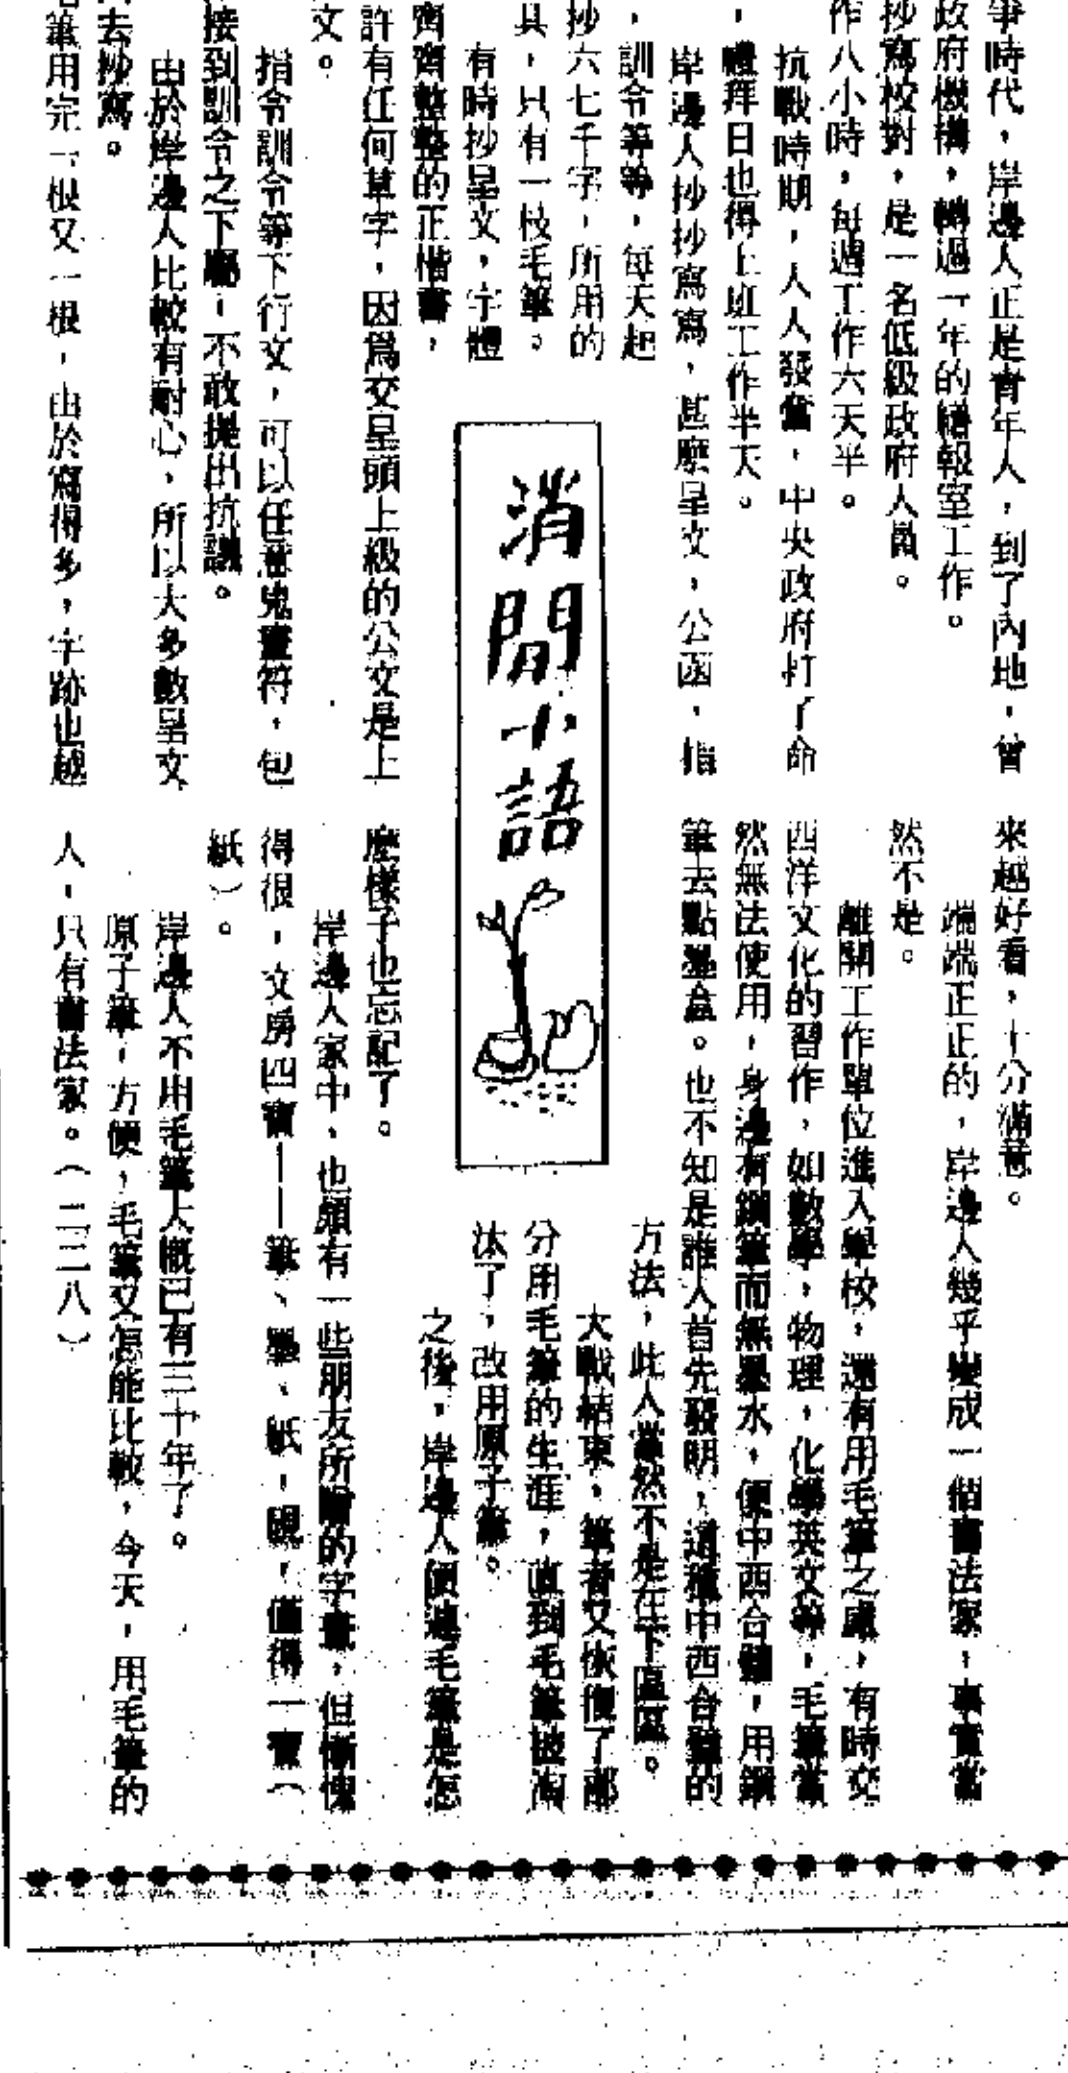 爭時代，岸邊人正是青年人，到了內地，曾
政府機構，轉過一年的繕報室工作。
抄寫校對，是一名低級政府人員。
作八小時，每週工作六天半。
抗戰時期，人人發奮，中央政府打了命
，禮拜日也得上班工作半天。
岸邊人抄抄寫寫，甚麼呈文，公函，指
，訓令等等，每天起
抄六七千字，所用的
具，只有一枝毛筆。
有時抄呈文，字體
齊齊整整的正楷書，
許有任何草字，因爲交呈頭上級的公文是上
文。
指令訓令等下行文，可以任意鬼畫符，包
接到訓令之下屬，不敢提出抗議。
由於岸邊人比較有耐心，所以大多數呈文
去抄寫。
筆用完一根又一根，由於寫得多，字跡也越
消閒小語
來越好看，十分滿意。
端端正正的，岸邊人幾乎變成一個書法家，事實當
然不是。
離開工作單位進入學校，還有用毛筆之處，有時交
西洋文化的習作，如數學，物理，化學英文等，毛筆當
然無法使用，身邊有鋼筆而無墨水，便中西合體，用鋼
筆去點墨盒。也不知是誰人首先發明，這種中西合體的
方法，此人當然不是在下區區。
大戰結束，筆者又恢復了部
分用毛筆的生涯，直到毛筆被淘
汰了，改用原子筆。
之後，岸邊人便連毛筆是怎
麼樣子也忘記了。
岸邊人家中，也頗有一些朋友所贈的字畫，但慚愧
得很，文房四寶——筆、墨、紙，硯，僅得一寶（
紙）。
岸邊人不用毛筆大概已有三十年了。
原子筆，方便，毛筆又怎能比較，今天，用毛筆的
人，只有書法家。（二三八）